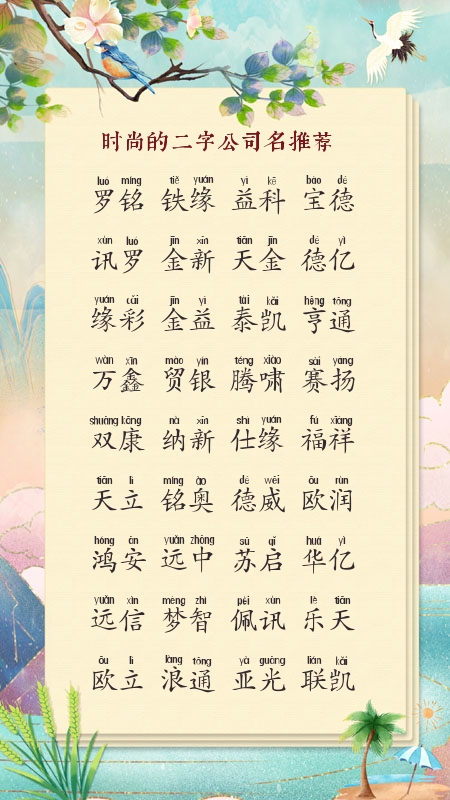 时尚的二字公司名推荐
luó míng tiě yuán yì kē bǎo dé
罗铭 铁缘 益科 宝德
xùn luó jīn xīn tiān jīn dé yì
讯罗 金新 天金 德亿
yuán cǎi jīn yì tài kǎi hēng tōng
缘彩 金益 泰凯 亨通
wàn xīn mào yín téng xiào sài yáng
万鑫 贸银 腾啸 赛扬
shuāng kāng nà xīn shì yuán fú xiáng
双康 纳新 仕缘 福祥
tiān lì míng ào dé wēi ōu rùn
天立 铭奥 德威 欧润
hóng ān yuǎn zhōng sū qǐ huá yì
鸿安 远中 苏启 华亿
yuǎn xìn mèng zhì pèi xùn lè tiān
远信 梦智 佩讯 乐天
ōu lì làng tōng yà guāng lián kǎi
欧立 浪通 亚光 联凯